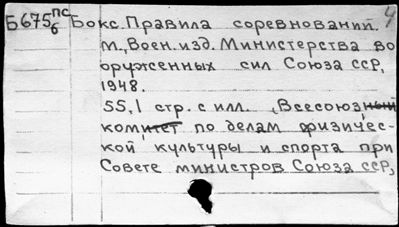 Б675 пс б Бокс. Правила соревнований. 4
М., Воен. изд. Министерства во
оруженных сил Союза ССР,
1948.
55,1 стр. с илл. (Всесоюзный
комитет по делам физичес-
кой культуры и спорта при
Совете министров Союза ССР,